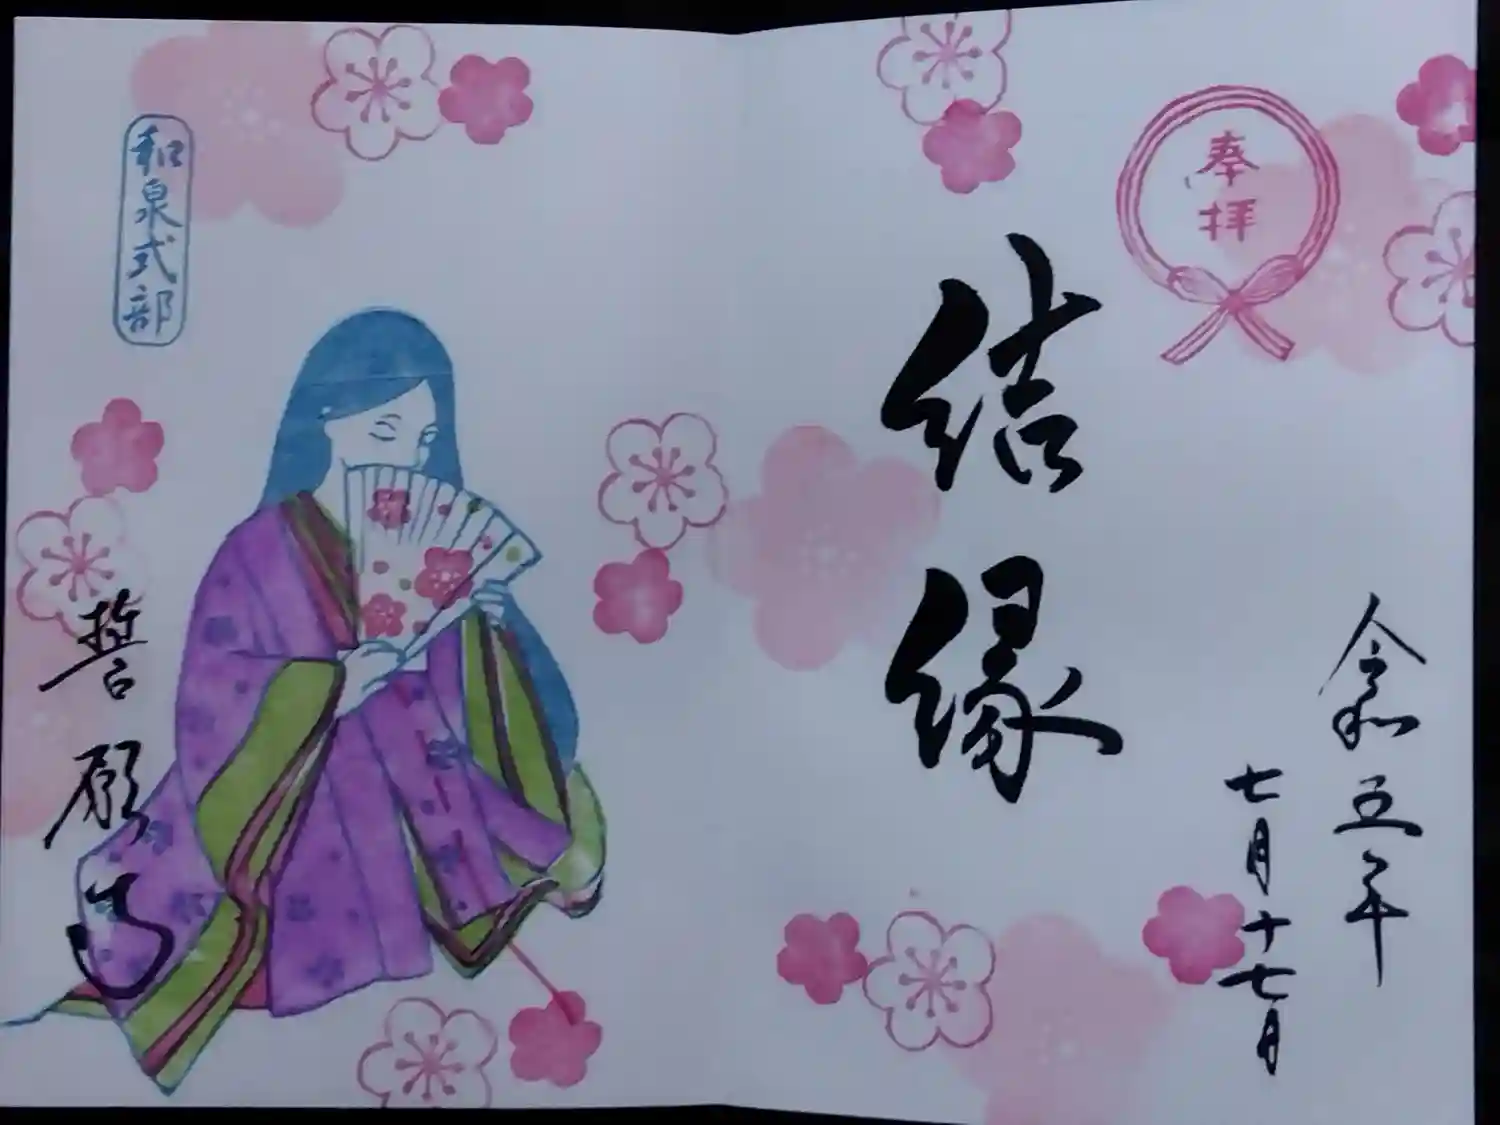 奉拝
令和五年
七月十七日
結縁
和泉式部
誓願寺